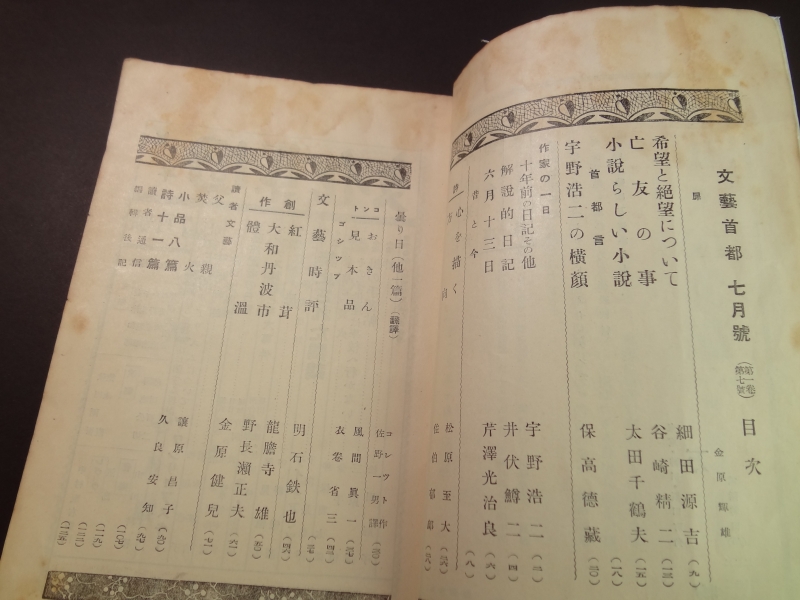 文藝首都 七月號 (第一卷第七號) 目次
扉 金原輝雄
希望と絶望について 細田源吉 (九)
亡友の事 谷崎精二 (一三)
小説らしい小説 太田千鶴夫 (一五)
首都言 (一八)
宇野浩二の横顔 保高徳藏 (二〇)
作家の一日
十年前の日記その他 宇野浩二 (二)
解説的日記 井伏鱒二 (四)
六月十三日 芹澤光治良 (六)
昔と今 (八)
詩
心を描く 松原至大
佐伯郁郎
曇り日(他一篇)(飜譯) コレツト作 佐野一男譯
コント
おきん 風間眞一
見本品 衣卷省三
ゴシツプ
文藝時評 明石鉄也
創作
紅茸 龍膽寺雄
大和丹波市 野長瀬正夫
體溫 金原健兒
讀者文藝
父親 讓原昌子
焚火 久良安知
小品八篇
詩十一篇
讀者通信
編輯後記